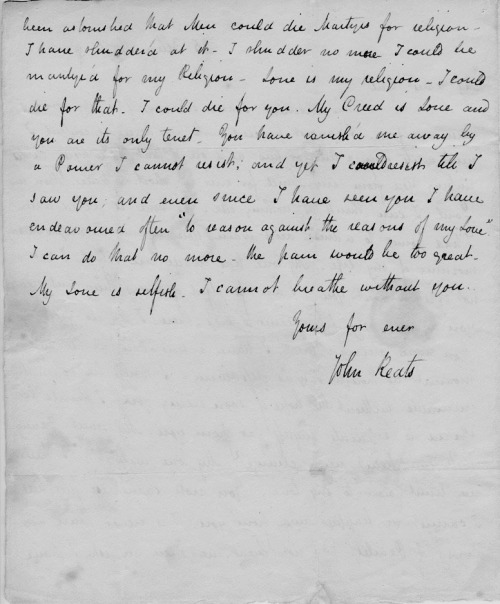 been astonished that Men could die Martyrs for religion -
I have shudder'd at it - I shudder no more I could be
martyr'd for my Religion - Love is my religion - I could
die for that - I could die for you. My Creed is Love and
you are its only tenet - You have ravish'd me away by
a Power I cannot resist; and yet I could resist till I
saw you; and even since I have seen you I have
endeavoured often "to reason against the reasons of my Love"
I can do that no more - the pain would be too great -
My Love is selfish - I cannot breathe without you.
Yours for ever
John Keats